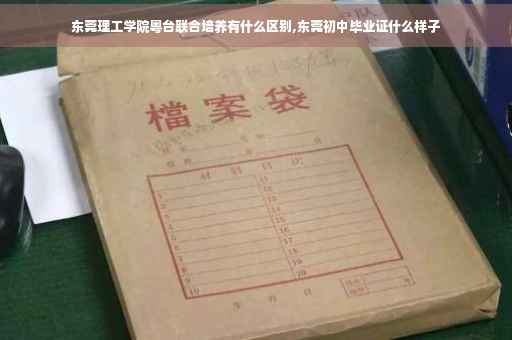 东莞理工学院粤台联合培养有什么区别,东莞初中毕业证什么样子
檔案袋
材料目次
1 11
2 12
3 13
4 14
5 15
6 16
7 17
8 18
9 19
10 20
年月日